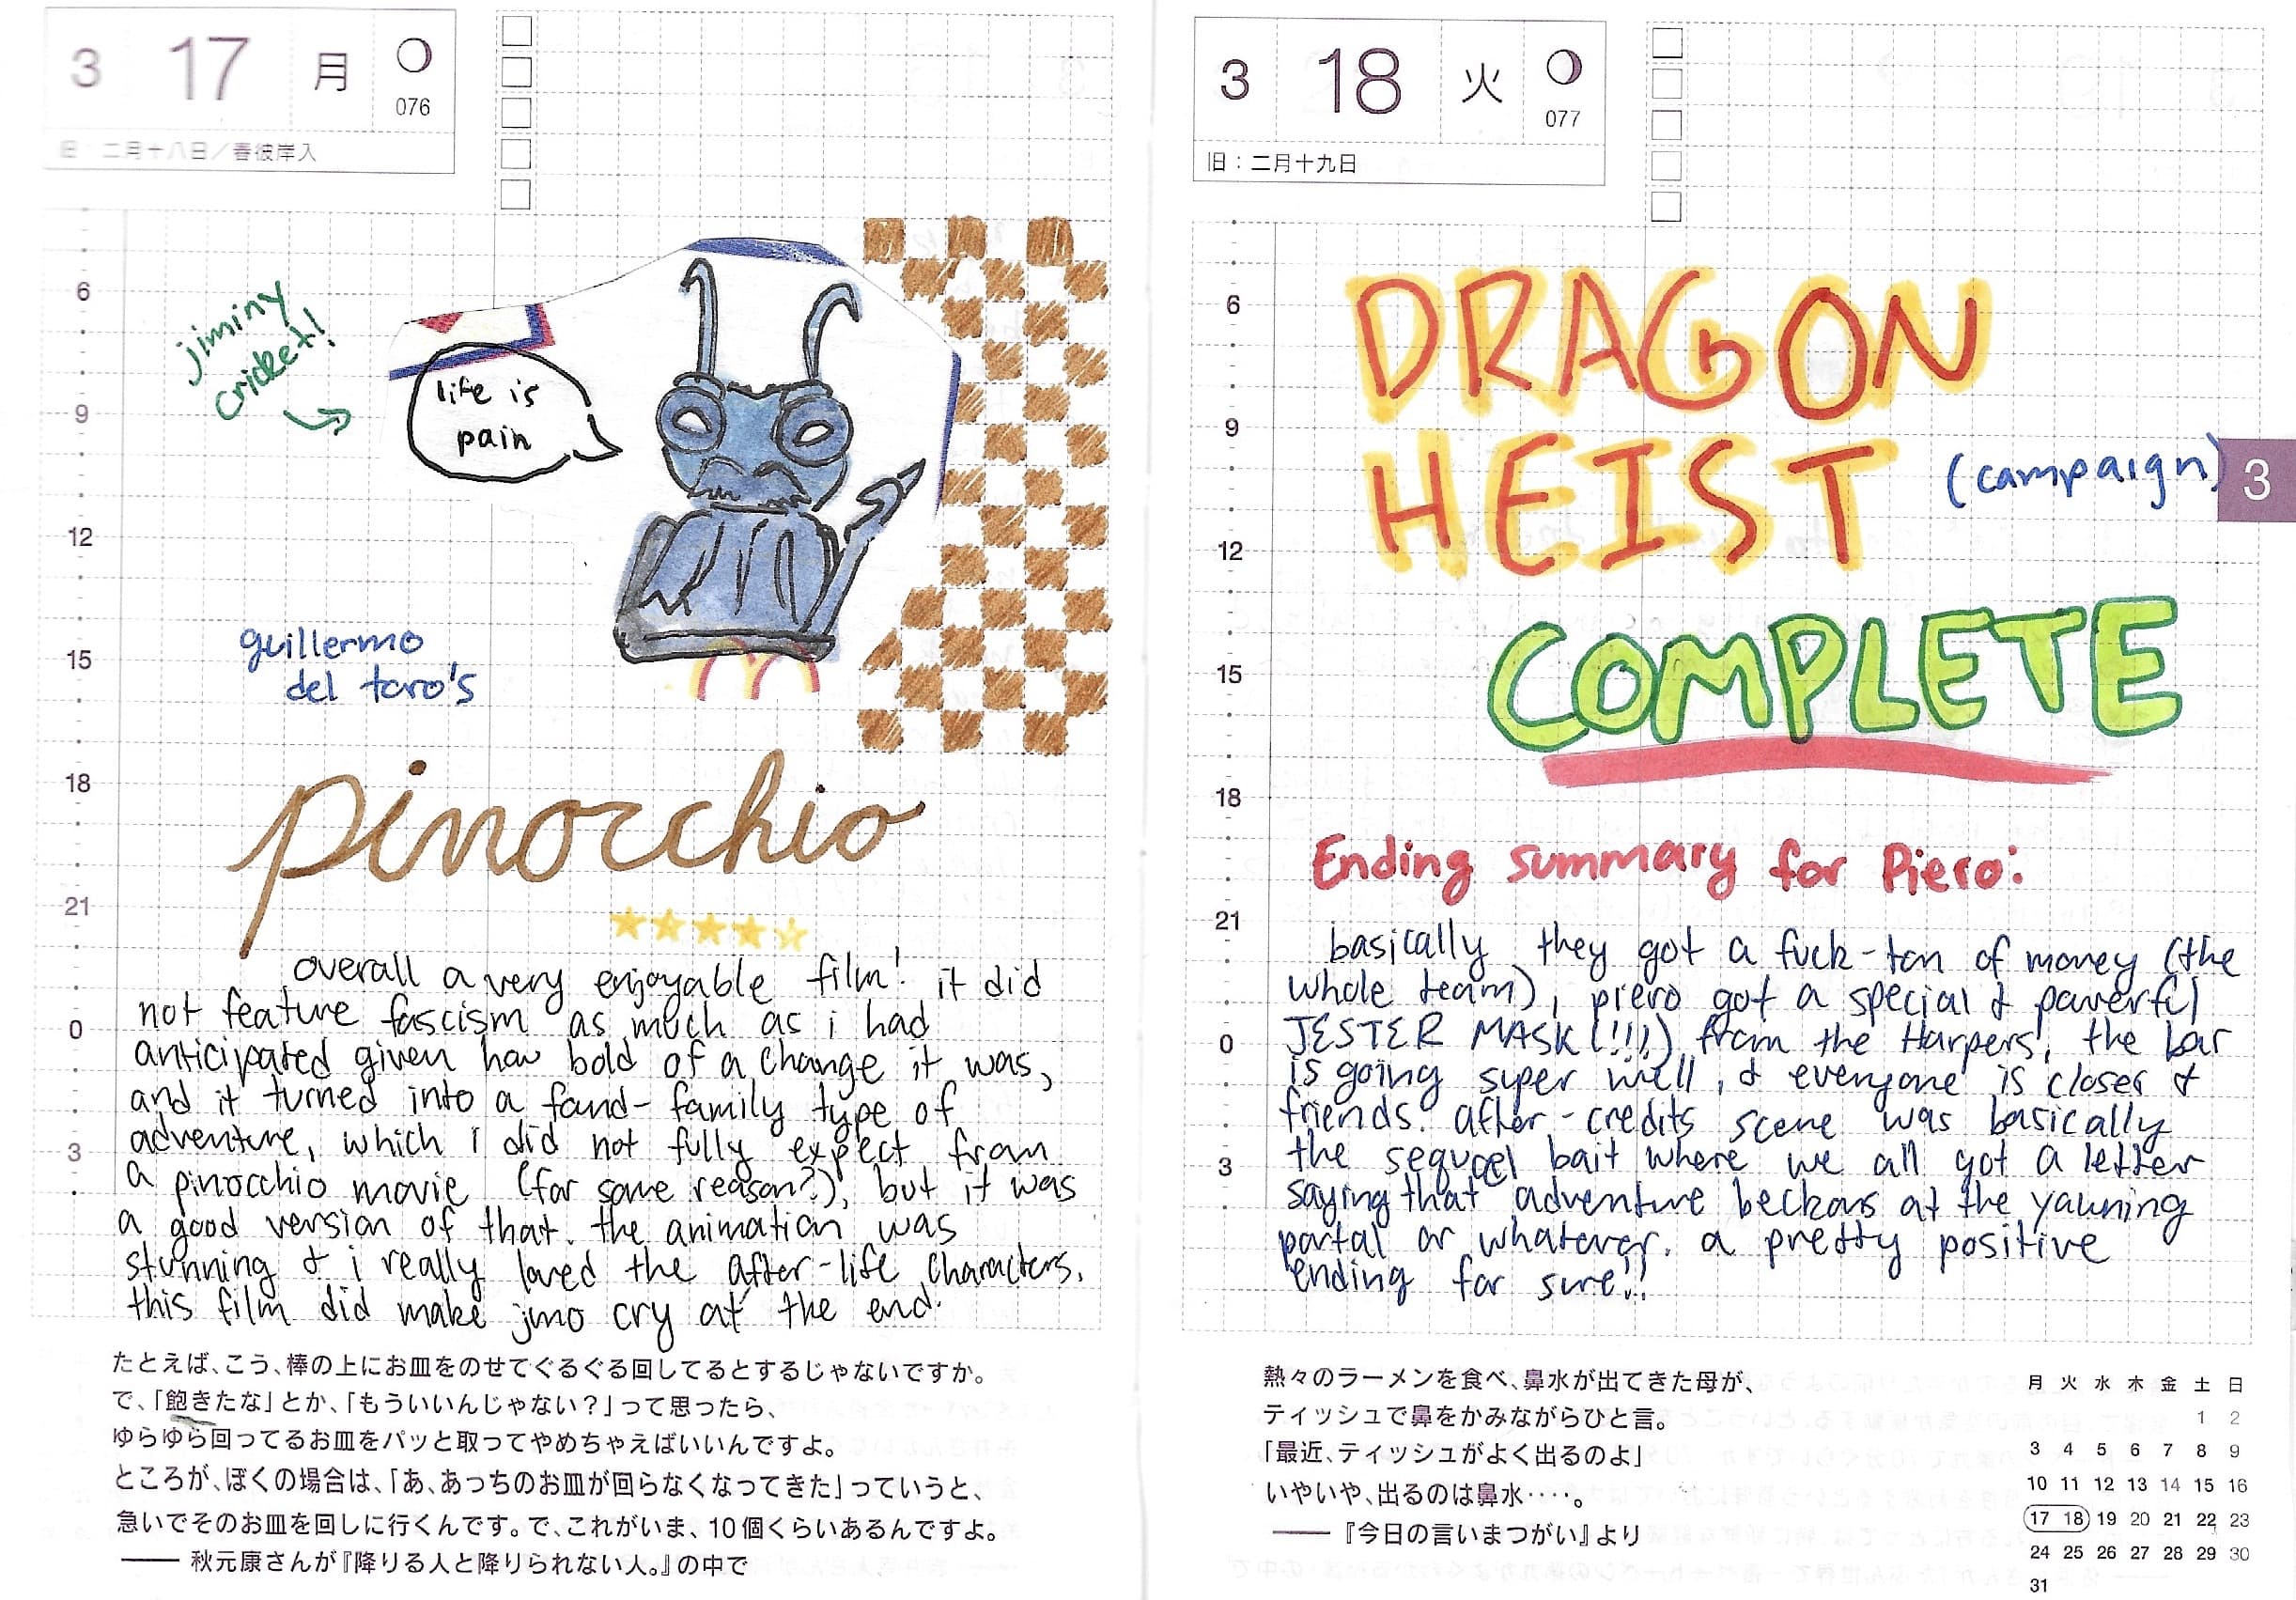 3 17 月
076
旧：二月十八日／春彼岸入
jiminy
cricket!
life is
pain
6
9
12
15
18
21
0
3
guillermo
del toro's
pinocchio
overall a very enjoyable film! it did
not feature fascism as much as i had
anticipated given how bold of a change it was,
and it turned into a found-family type of
adventure, which i did not fully expect from
a pinocchio movie (for some reason?), but it was
a good version of that. the animation was
stunning & i really loved the after-life characters.
this film did make jmo cry at the end.
たとえば、こう、棒の上にお皿をのせてぐるぐる回してるとするじゃないですか。
で、「飽きたな」とか、「もういいんじゃない？」って思ったら、
ゆらゆら回ってるお皿をパッと取ってやめちゃえばいいんですよ。
ところが、ぼくの場合は、「あ、あっちのお皿が回らなくなってきた」っていうと、
急いでそのお皿を回しに行くんです。で、これがいま、10個くらいあるんですよ。
―― 秋元康さんが『降りる人と降りられない人。』の中で
3 18 火
077
旧：二月十九日
6
9
12
15
18
21
0
3
DRAGON
HEIST (campaign)
3
COMPLETE
Ending summary for Piero:
basically they got a fuck-ton of money (the
whole team), piero got a special & powerful
JESTER MASK (!!!) from the Harpers, the bar
is going super well, & everyone is closer &
friends. after-credits scene was basically
the sequel bait where we all got a letter
saying that adventure beckons at the yawning
portal or whatever. a pretty positive
ending for sure!!
熱々のラーメンを食べ、鼻水が出てきた母が、
ティッシュで鼻をかみながらひと言。
「最近、ティッシュがよく出るのよ」
いやいや、出るのは鼻水‥‥。
―― 『今日の言いまつがい』より
月 火 水 木 金 土 日
1 2
3 4 5 6 7 8 9
10 11 12 13 14 15 16
17 18 19 20 21 22 23
24 25 26 27 28 29 30
31